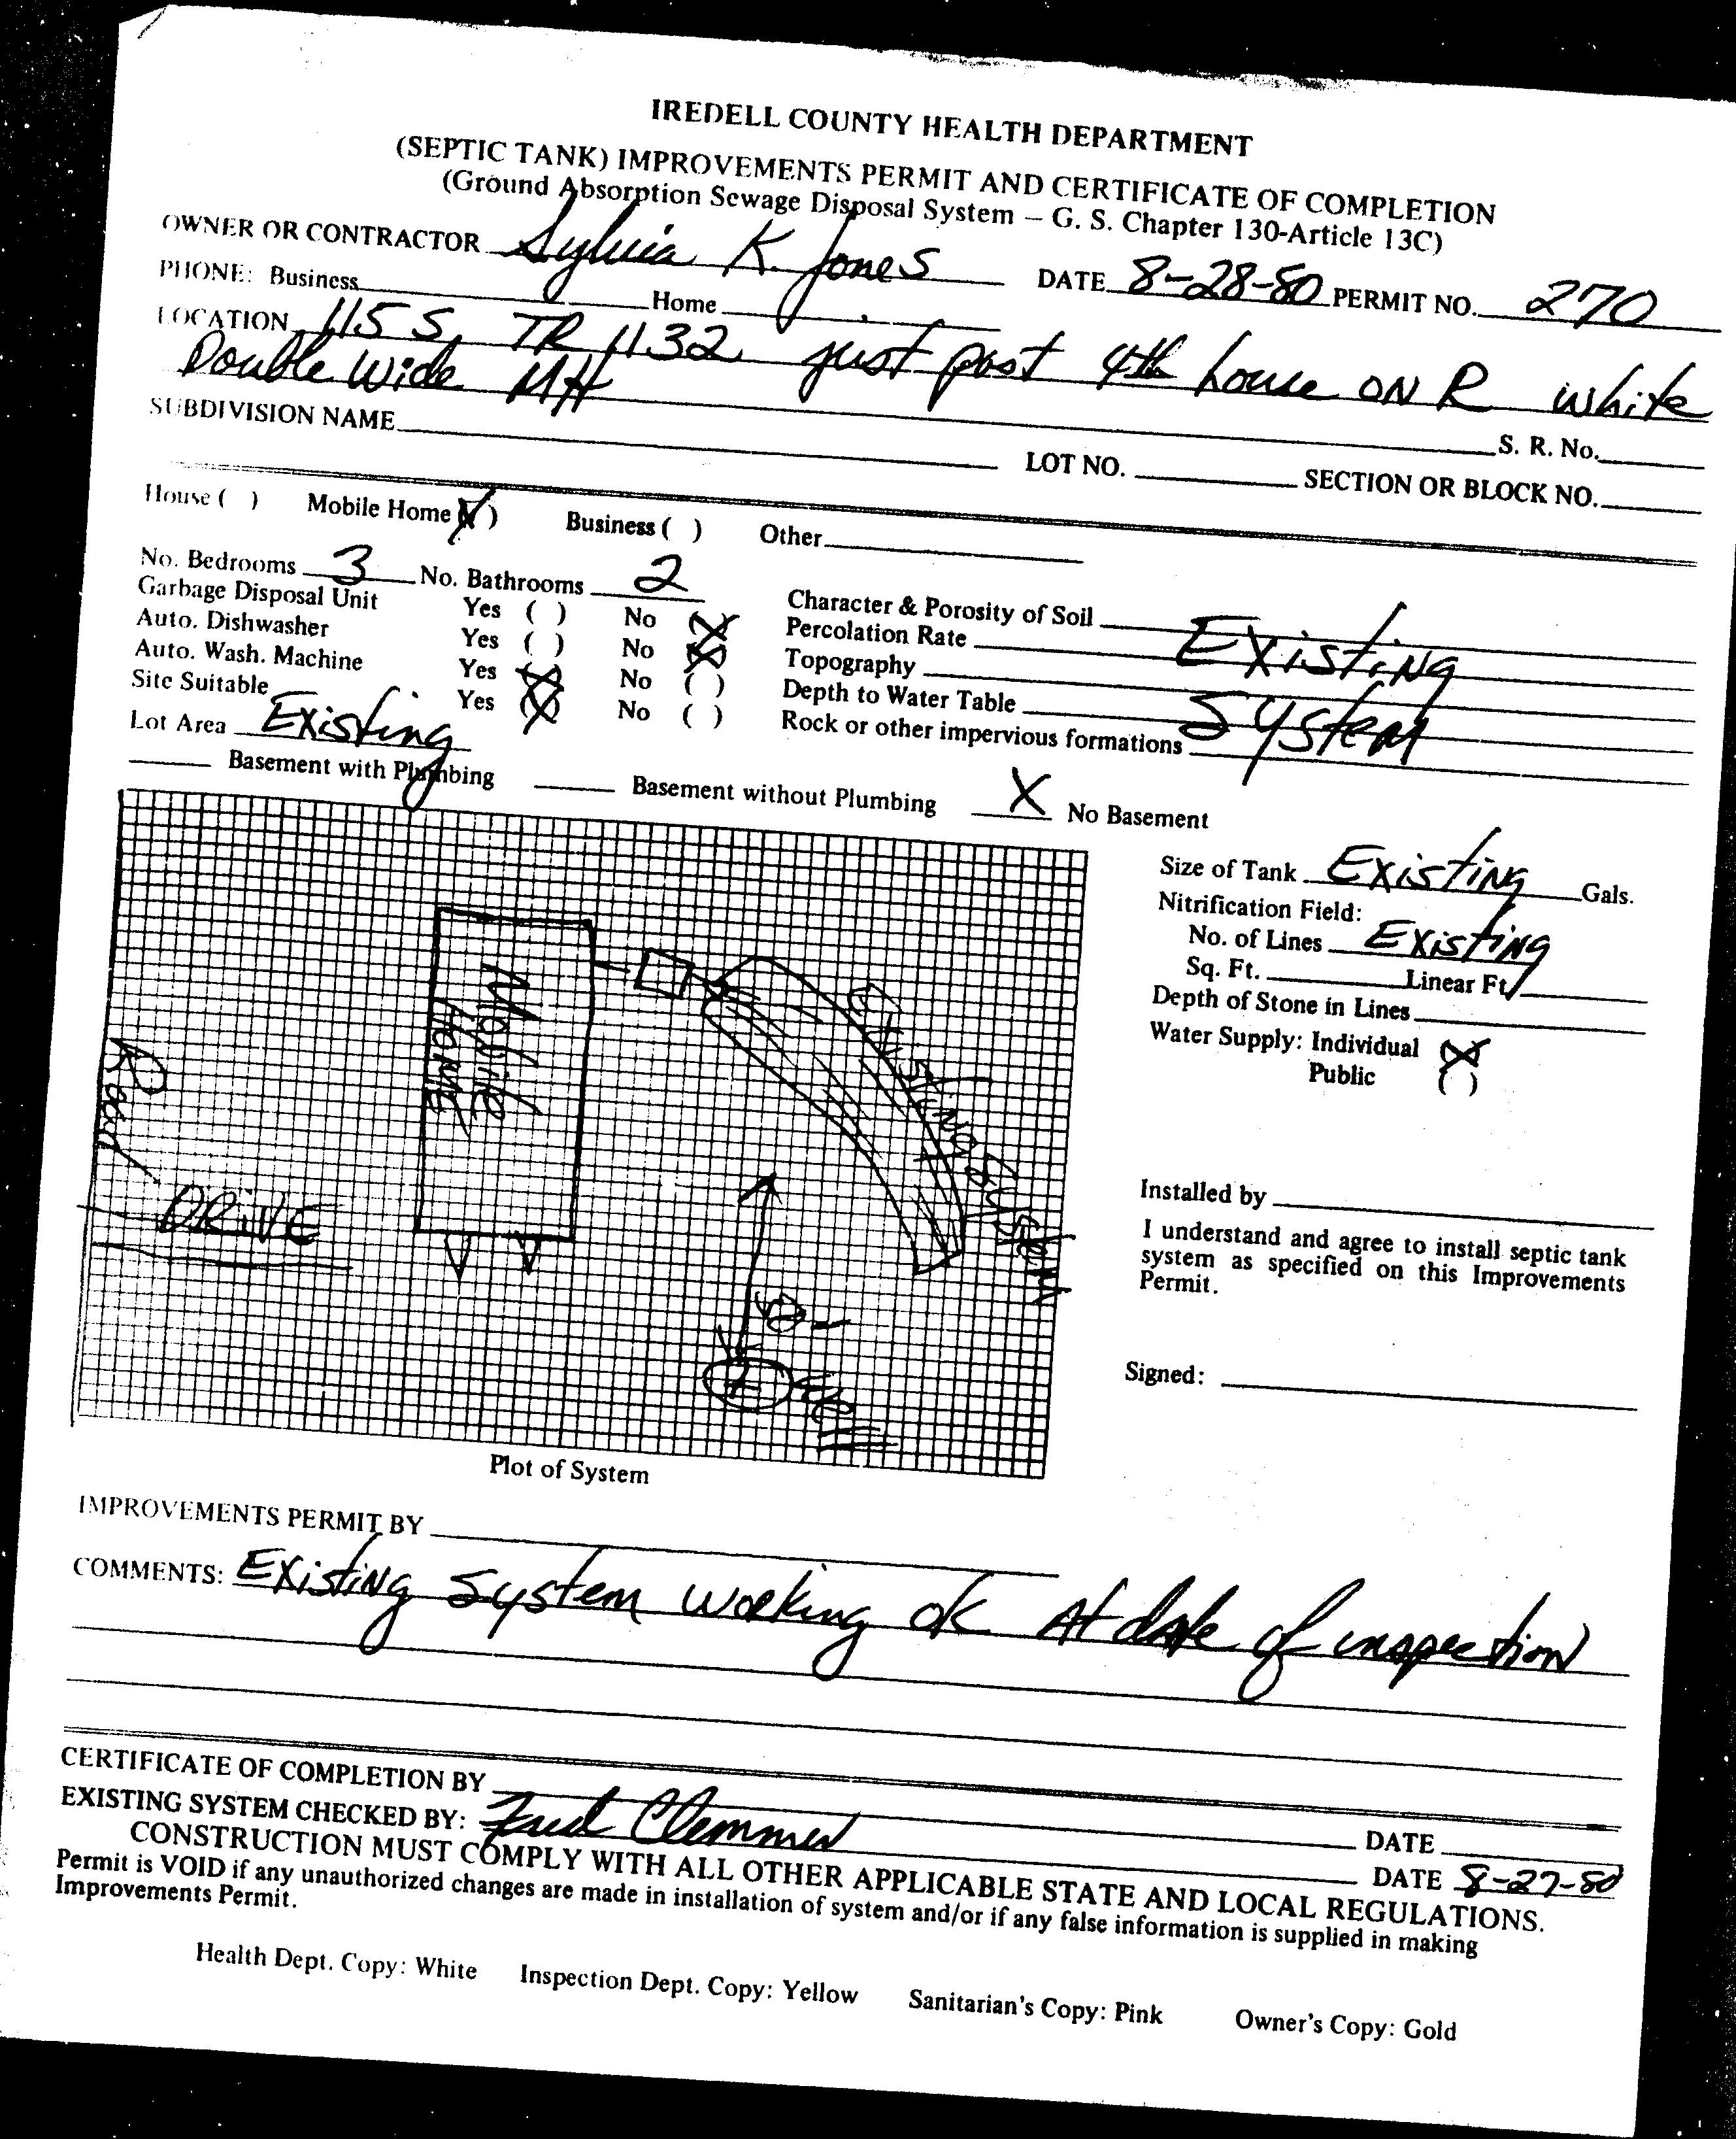 IREDELL COUNTY HEALTH DEPARTMENT
(SEPTIC TANK) IMPROVEMENTS PERMIT AND CERTIFICATE OF COMPLETION
(Ground Absorption Sewage Disposal System – G. S. Chapter 130-Article 13C)
OWNER OR CONTRACTOR Sylvia K. Jones DATE 8-28-80 PERMIT NO. 270
PHONE: Business Home
LOCATION 115 S, TR 1132 just past 4th house ON R white
Double Wide MH S. R. No.
SUBDIVISION NAME LOT NO. SECTION OR BLOCK NO.
House ( ) Mobile Home (X) Business ( ) Other
No. Bedrooms 3 No. Bathrooms 2
Garbage Disposal Unit Yes ( ) No (X)
Auto. Dishwasher Yes ( ) No (X)
Auto. Wash. Machine Yes (X) No ( )
Site Suitable Yes (X) No ( )
Lot Area Existing
Character & Porosity of Soil
Percolation Rate Existing
Topography
Depth to Water Table System
Rock or other impervious formations
Basement with Plumbing Basement without Plumbing X No Basement
Mobile
Home
Existing System
Road
DRIVE
Size of Tank Existing Gals.
Nitrification Field:
No. of Lines Existing
Sq. Ft. Linear Ft.
Depth of Stone in Lines
Water Supply: Individual (X)
Public ( )
Installed by
I understand and agree to install septic tank
system as specified on this Improvements
Permit.
Signed:
Plot of System
IMPROVEMENTS PERMIT BY
COMMENTS: Existing System working OK At date of inspection
CERTIFICATE OF COMPLETION BY DATE
EXISTING SYSTEM CHECKED BY: Fred Clemmer DATE 8-27-80
CONSTRUCTION MUST COMPLY WITH ALL OTHER APPLICABLE STATE AND LOCAL REGULATIONS.
Permit is VOID if any unauthorized changes are made in installation of system and/or if any false information is supplied in making
Improvements Permit.
Health Dept. Copy: White Inspection Dept. Copy: Yellow Sanitarian's Copy: Pink Owner's Copy: Gold